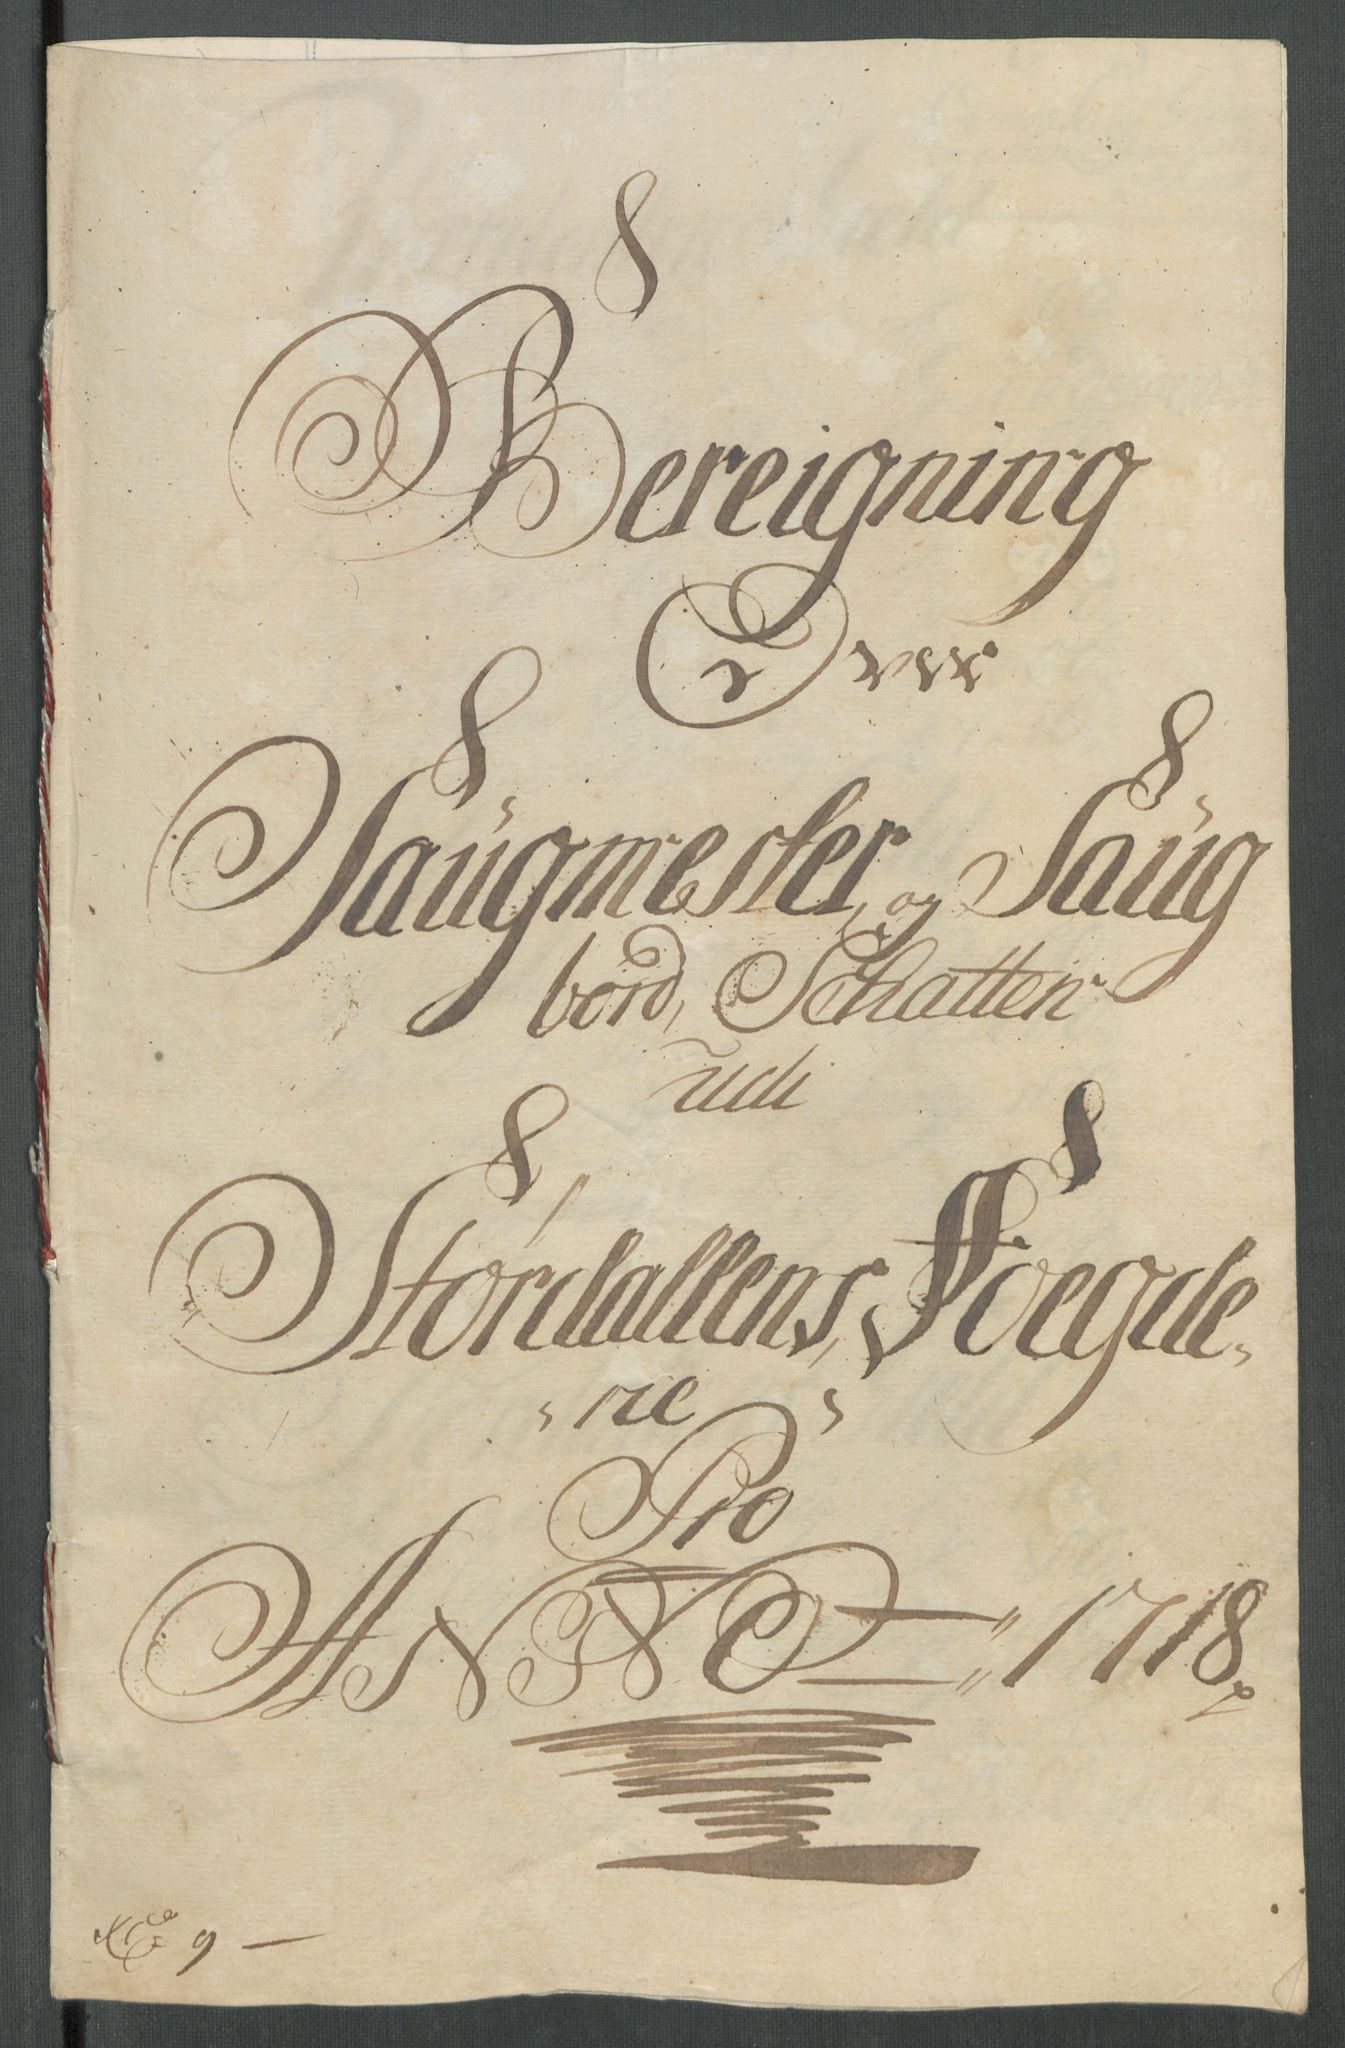 Bereigning
Over
Saugmester, og Saug
bord, Schatten
udi
Størdallens, Foegde,
, rie ,
Pro
ANNO 1718
No 9 —